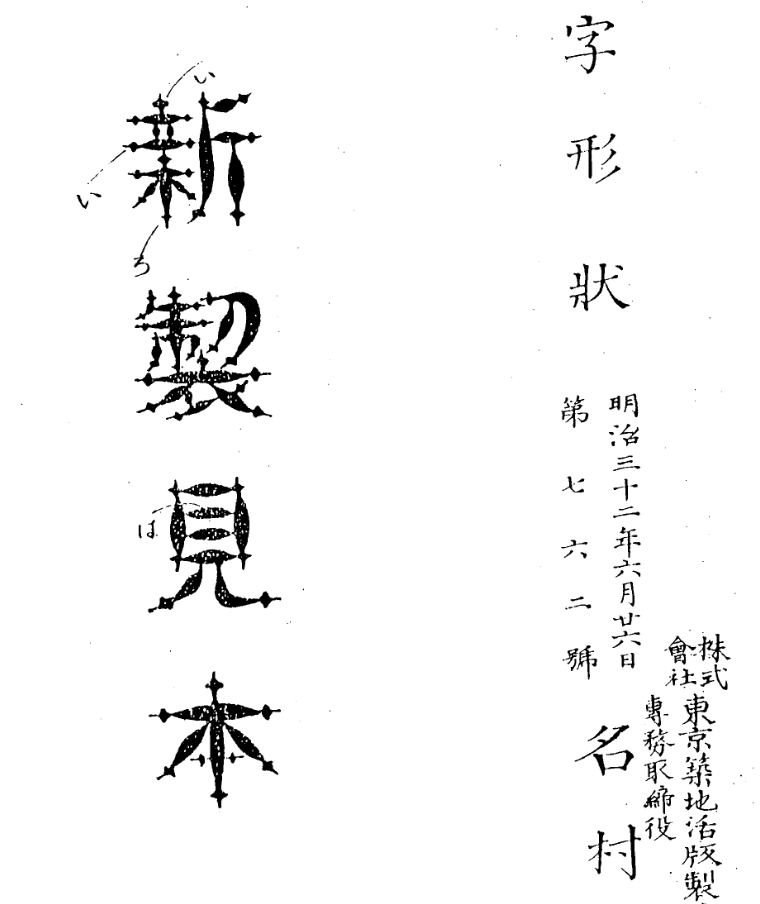 株式會社東京築地活版製
專務取締役
名村
明治三十二年六月廿六日
第七六二號
字形狀
新製見本
い
い
ろ
は